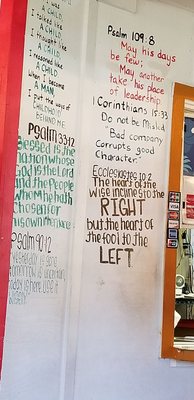 A CHILD,
I talked like
A CHILD,
I thought like
A CHILD,
I reasoned like
A CHILD
when I became
A MAN
I put the ways of
CHILDHOOD
BEHIND
ME
Psalm 33:12
Blessed is the
nation whose
God is the Lord
and the People
whom he hath
chosen for
his own
Psalm 90:12
Yesterday is gone
tomorrow is uncertain
today is here use it
Psalm 109:8
May his days
be few;
May another
take his place
of leadership
1 Corinthians 15:33
Do not be Misled
"Bad company
Corrupts good
Character."
Ecclesiastes 10:2
The heart of the
wise inclines to the
RIGHT
but the heart of
the fool to the
LEFT
VISA